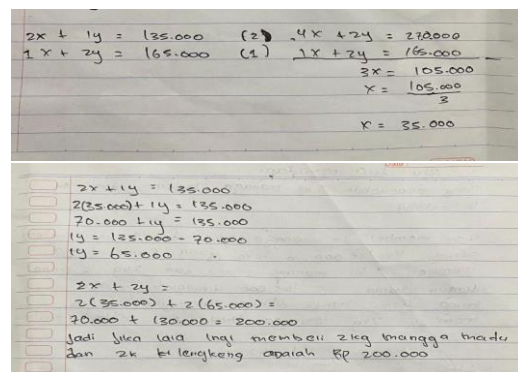 2x + 1y = 135.000 (2) 4x + 2y = 270.000
1x + 2y = 165.000 (1) 1x + 2y = 165.000
3x = 105.000
x = 105.000
3
x = 35.000
2x + 1y = 135.000
2(35.000) + 1y = 135.000
70.000 + 1y = 135.000
1y = 135.000 - 70.000
1y = 65.000
2x + 2y =
2(35.000) + 2(65.000) =
70.000 + 130.000 = 200.000
Jadi Jika lala Ingi membeli 2kg mangga madu
dan 2k kelengkeng adalah Rp 200.000